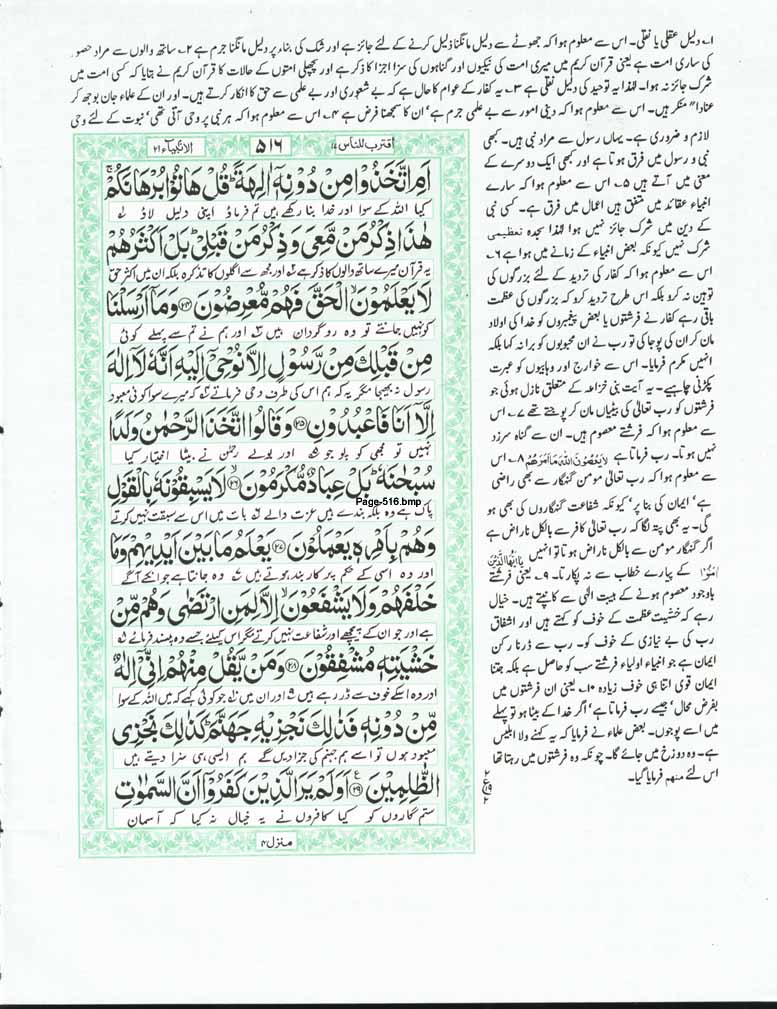 ۱۔ دلیل عقلی یا نقلی۔ اس سے معلوم ہوا کہ جھوٹے سے دلیل مانگنا ذلیل کرنے کے لئے جائز ہے اور شک کی بناء پر دلیل مانگنا جرم ہے ۲۔ ساتھ والوں سے مراد حضور
کی ساری امت ہے یعنی قرآن کریم میں میری امت کی نیکیوں اور گناہوں کی سزا جزا کا ذکر ہے اور پچھلی امتوں کے حالات کا قرآن کریم نے بتایا کہ کسی امت میں
شرک جائز نہ ہوا۔ لہٰذا یہ توحید کی دلیل نقلی ہے ۳۔ یہ کفار کے عوام کا حال ہے کہ بے شعوری اور بے علمی سے حق کا انکار کرتے ہیں۔ اور ان کے علماء جان بوجھ کر
عنادا" منکر ہیں۔ اس سے معلوم ہوا کہ دینی امور سے بے علمی جرم ہے' ان کا سمجھنا فرض ہے ۴۔ اس سے معلوم ہوا کہ ہر نبی پر وحی آتی تھی' نبوت کے لئے وحی
لازم و ضروری ہے۔ یہاں رسول سے مراد نبی ہیں۔ کبھی
نبی و رسول میں فرق ہوتا ہے اور کبھی ایک دوسرے کے
معنی میں آتے ہیں ۵۔ اس سے معلوم ہوا کہ سارے
انبیاء عقائد میں متفق ہیں اعمال میں فرق ہے۔ کسی نبی
کے دین میں شرک جائز نہیں ہوا لہٰذا سجدہ تعظیمی
شرک نہیں کیونکہ بعض انبیاء کے زمانے میں ہوا ہے ۶۔
اس سے معلوم ہوا کہ کفار کی تردید کے لئے بزرگوں کی
توہین نہ کرو بلکہ اس طرح تردید کرو کہ بزرگوں کی عظمت
باقی رہے کفار نے فرشتوں یا بعض پیغمبروں کو خدا کی اولاد
مان کر ان کی پوجا کی تو رب نے ان محبوبوں کو برا نہ کہا بلکہ
انہیں مکرم فرمایا۔ اس سے خوارج اور وہابیوں کو عبرت
پکڑنی چاہیے۔ یہ آیت بنی خزاعہ کے متعلق نازل ہوئی جو
فرشتوں کو رب تعالیٰ کی بیٹیاں مان کر پوجتے تھے ۷۔ اس
سے معلوم ہوا کہ فرشتے معصوم ہیں۔ ان سے گناہ سرزد
نہیں ہوتا۔ رب فرماتا ہے لَا يَعْصُوْنَ اللّٰهَ مَا اَمَرَهُمْ ۸۔ اس
سے معلوم ہوا کہ رب تعالیٰ مومن گنہگار سے بھی راضی
ہے' ایمان کی بنا پر' کیونکہ شفاعت گنہگاروں کی بھی ہو
گی۔ یہ بھی پتہ لگا کہ رب تعالیٰ کافر سے بالکل ناراض ہے
اگر گنہگار مومن سے بالکل ناراض ہوتا تو انہیں يٰاَيُّهَا الَّذِيْنَ
اٰمَنُوْا کے پیارے خطاب سے نہ پکارتا۔ ۹۔ یعنی فرشتے
باوجود معصوم ہونے کے ہیبت الٰہی سے کانپتے ہیں۔ خیال
رہے کہ خشیت عظمت کے خوف کو کہتے ہیں اور اشفاق
رب کی بے نیازی کے خوف کو۔ رب سے ڈرنا رکن
ایمان ہے جو انبیاء اولیاء فرشتے سب کو حاصل ہے بلکہ جتنا
ایمان قوی اتنا ہی خوف زیادہ ۱۰۔ یعنی ان فرشتوں میں
بفرض محال' جیسے رب فرماتا ہے' اگر خدا کے بیٹا ہو تو پہلے
میں اسے پوجوں۔ بعض علماء نے فرمایا کہ یہ کہنے والا ابلیس
ہے۔ وہ دوزخ میں جائے گا۔ چونکہ وہ فرشتوں میں رہتا تھا
اس لئے منہم فرمایا گیا۔
اقترب للناس ۱۷
۵۱۶
الانبیاء ۲۱
اَمِ اتَّخَذُوْا مِنْ دُوْنِهٖۤ اٰلِهَةً ؕ قُلْ هَاتُوْا بُرْهَانَكُمْ ۚ
کیا اللہ کے سوا اور خدا بنا رکھے ہیں تم فرماؤ اپنی دلیل لاؤ
هٰذَا ذِكْرُ مَنْ مَّعِیَ وَ ذِكْرُ مَنْ قَبْلِیْ ؕ بَلْ اَكْثَرُهُمْ
یہ قرآن میرے ساتھ والوں کا ذکر ہے اور مجھ سے اگلوں کا تذکرہ بلکہ ان میں اکثر حق
لَا یَعْلَمُوْنَ ۙ الْحَقَّ فَهُمْ مُّعْرِضُوْنَ ﴿۲۴﴾ وَ مَاۤ اَرْسَلْنَا
کو نہیں جانتے تو وہ روگردان ہیں اور ہم نے تم سے پہلے کوئی
مِنْ قَبْلِكَ مِنْ رَّسُوْلٍ اِلَّا نُوْحِیْۤ اِلَیْهِ اَنَّهٗ لَاۤ اِلٰهَ
رسول نہ بھیجا مگر یہ کہ ہم اس کی طرف وحی فرماتے کہ میرے سوا کوئی معبود
اِلَّاۤ اَنَا فَاعْبُدُوْنِ ﴿۲۵﴾ وَ قَالُوا اتَّخَذَ الرَّحْمٰنُ وَلَدًا
نہیں تو مجھی کو پوجو اور بولے رحمٰن نے بیٹا اختیار کیا
سُبْحٰنَهٗ ؕ بَلْ عِبَادٌ مُّكْرَمُوْنَ ﴿۲۶﴾ لَا یَسْبِقُوْنَهٗ بِالْقَوْلِ
Page-516.bmp
پاک ہے وہ بلکہ بندے ہیں عزت والے بات میں اس سے سبقت نہیں کرتے
وَ هُمْ بِاَمْرِهٖ یَعْمَلُوْنَ ﴿۲۷﴾ یَعْلَمُ مَا بَیْنَ اَیْدِیْهِمْ وَ مَا
اور وہ اسی کے حکم پر کاربند ہوتے ہیں وہ جانتا ہے جو انکے آگے
خَلْفَهُمْ وَ لَا یَشْفَعُوْنَ ۙ اِلَّا لِمَنِ ارْتَضٰی وَ هُمْ مِّنْ
ہے اور جو ان کے پیچھے اور شفاعت نہیں کرتے مگر اس کیلئے جسے وہ پسند فرمائے
خَشْیَتِهٖ مُشْفِقُوْنَ ﴿۲۸﴾ وَ مَنْ یَّقُلْ مِنْهُمْ اِنِّیْۤ اِلٰهٌ
اور وہ اسکے خوف سے ڈر رہے ہیں اور ان میں جو کوئی کہے کہ میں اللہ کے سوا
مِّنْ دُوْنِهٖ فَذٰلِكَ نَجْزِیْهِ جَهَنَّمَ ؕ كَذٰلِكَ نَجْزِی
معبود ہوں تو اسے ہم جہنم کی جزا دیں گے ہم ایسی ہی سزا دیتے ہیں
الظّٰلِمِیْنَ ﴿۲۹﴾ اَوَ لَمْ یَرَ الَّذِیْنَ كَفَرُوْۤا اَنَّ السَّمٰوٰتِ
ستم گاروں کو کیا کافروں نے یہ خیال نہ کیا کہ آسمان
منزل ۴